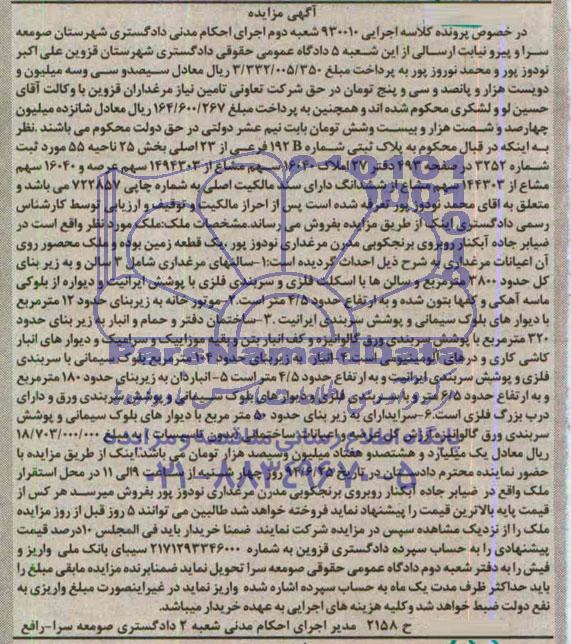 آگهی مزایده
در خصوص پرونده کلاسه اجرایی ۹۳۰۰۱۰ شعبه دوم اجرای احکام مدنی دادگستری شهرستان صومعه
سرا و پیرو نیابت ارسالی از این شعبه ۵ دادگاه عمومی حقوقی دادگستری شهرستان قزوین علی اکبر
نودوز پور و محمد نوروز پور به پرداخت مبلغ ۳/۳۳۲/۰۰۵/۳۵۰ ریال معادل سیصدو سی وسه میلیون و
دویست هزار و پانصد و سی و پنج تومان در حق شرکت تعاونی تامین نیاز مرغداران قزوین با وکالت آقای
حسین لو و لشکری محکوم شده اند و همچنین به پرداخت مبلغ ۱۶۴/۶۰۰/۲۶۷ ریال معادل شانزده میلیون
چهارصد و شصت هزار و بیست وشش تومان بابت نیم عشر دولتی در حق دولت محکوم می باشند .نظر
به اینکه در قبال محکوم به پلاک ثبتی شماره ۱۹۲B فرعی از ۲۳ اصلی بخش ۲۵ ناحیه ۵۵ مورد ثبت
شماره ۳۲۵۲ در صفحه ۴۹۳ دفتر ۲۷ املاک ۱۶۰۴۰ سهم مشاع از ۱۴۹۴۳۰۳ سهم عرصه و ۱۶۰۴۰ سهم
مشاع از ۱۴۴۳۰۳ سهم مشاع از ششدانگ دارای سند مالکیت اصلی به شماره چاپی ۷۲۲۸۵۷ می باشد و
متعلق به اقای محمد نودوز پور تعرفه شده است پس از احراز مالکیت و توقیف و ارزیابی توسط کارشناس
رسمی دادگستری اینک از طریق مزایده بفروش می رساند.مشخصات ملک:ملک مورد نظر واقع است در
ضیابر جاده آبکنار روبروی برنجکوبی مدرن مرغداری نودوز پور .یک قطعه زمین بوده و ملک محصور روی
آن اعیانات مرغداری به شرح ذیل احداث گردیده است:۱-سالنهای مرغداری شامل ۳ سالن و به زیر بنای
کل حدود ۳۸۰۰ مترمربع و سالن ها با اسکلت فلزی و سربندی فلزی با پوشش ایرانیت و دیواره از بلوکی
ماسه آهکی و کفها بتون شده و به ارتفاع حدود ۴/۵ متر است.۲-موتور خانه به زیربنای حدود ۱۲ مترمربع
با دیوار های بلوک سیمانی و پوشش سربندی ایرانیت .۳-ساختمان دفتر و حمام و انبار به زیر بنای حدود
۳۲۰ مترمربع با پوشش سربندی ورق گالوانیزه و کف انبار بتن و بقیه موزاییک و سرامیک و دیوار های انبار
کاشی کاری و درهای آلومینیومی است.۴-انبار به زیربنای حدود ۱۰۴ مترمربع بلوک سیمانی با سربندی
فلزی و پوشش سربندی ایرانیت و به ارتفاع حدود ۴/۵ متر است ۵-انباردان به زیربنای حدود ۱۸۰ مترمربع
و به ارتفاع حدود ۶/۵ متر و با سربندی فلزی و دیوار های بلوک سیمانی و پوشش سربندی ورق و دارای
درب بزرگ فلزی است.۶-سرایداری به زیر بنای حدود ۵۰ متر مربع با دیوار های بلوک سیمانی و پوشش
سربندی ورق گالوانیزه ارزش کل عرصه و اعیانات ساختمانی بدون تاسیسات به مبلغ ۱۸/۷۰۳/۰۰۰/۰۰۰
ریال معادل یک میلیارد و هشتصدو هفتاد میلیون وسیصد هزار تومان می باشد.اینک از طریق مزایده با
حضور نماینده محترم دادستان در تاریخ ۹۴/۶/۲۵ روز چهار شنبه از ساعت ۹الی ۱۱ در محل استقرار
ملک واقع در ضیابر جاده آبکنار روبروی برنجکوبی مدرن مرغداری نودوز پور بفروش میرسد هر کس از
قیمت پایه بالاترین قیمت را پیشنهاد نماید فروخته خواهد شد طالبین می توانند ۵ روز قبل از روز مزایده
ملک را از نزدیک مشاهده سپس در مزایده شرکت نمایند ضمنا خریدار باید فی المجلس ۱۰درصد قیمت
پیشنهادی را به حساب سپرده دادگستری قزوین به شماره ۲۱۷۱۲۹۳۳۴۶۰۰۰ سیبای بانک ملی واریز و
فیش را به دفتر شعبه دوم دادگاه عمومی حقوقی صومعه سرا تحویل نماید ضمنابرنده مزایده مابقی مبلغ را
باید حداکثر ظرف مدت یک ماه به حساب سپرده اشاره شده واریز نماید در غیراینصورت مبلغ واریزی به
نفع دولت ضبط خواهد شد و کلیه هزینه های اجرایی به عهده خریدار میباشد.
ح ۲۱۵۸ مدیر اجرای احکام مدنی شعبه ۲ دادگستری صومعه سرا-رافع
۰۲۱-۸۸۳۴۹۶۷۰-۵